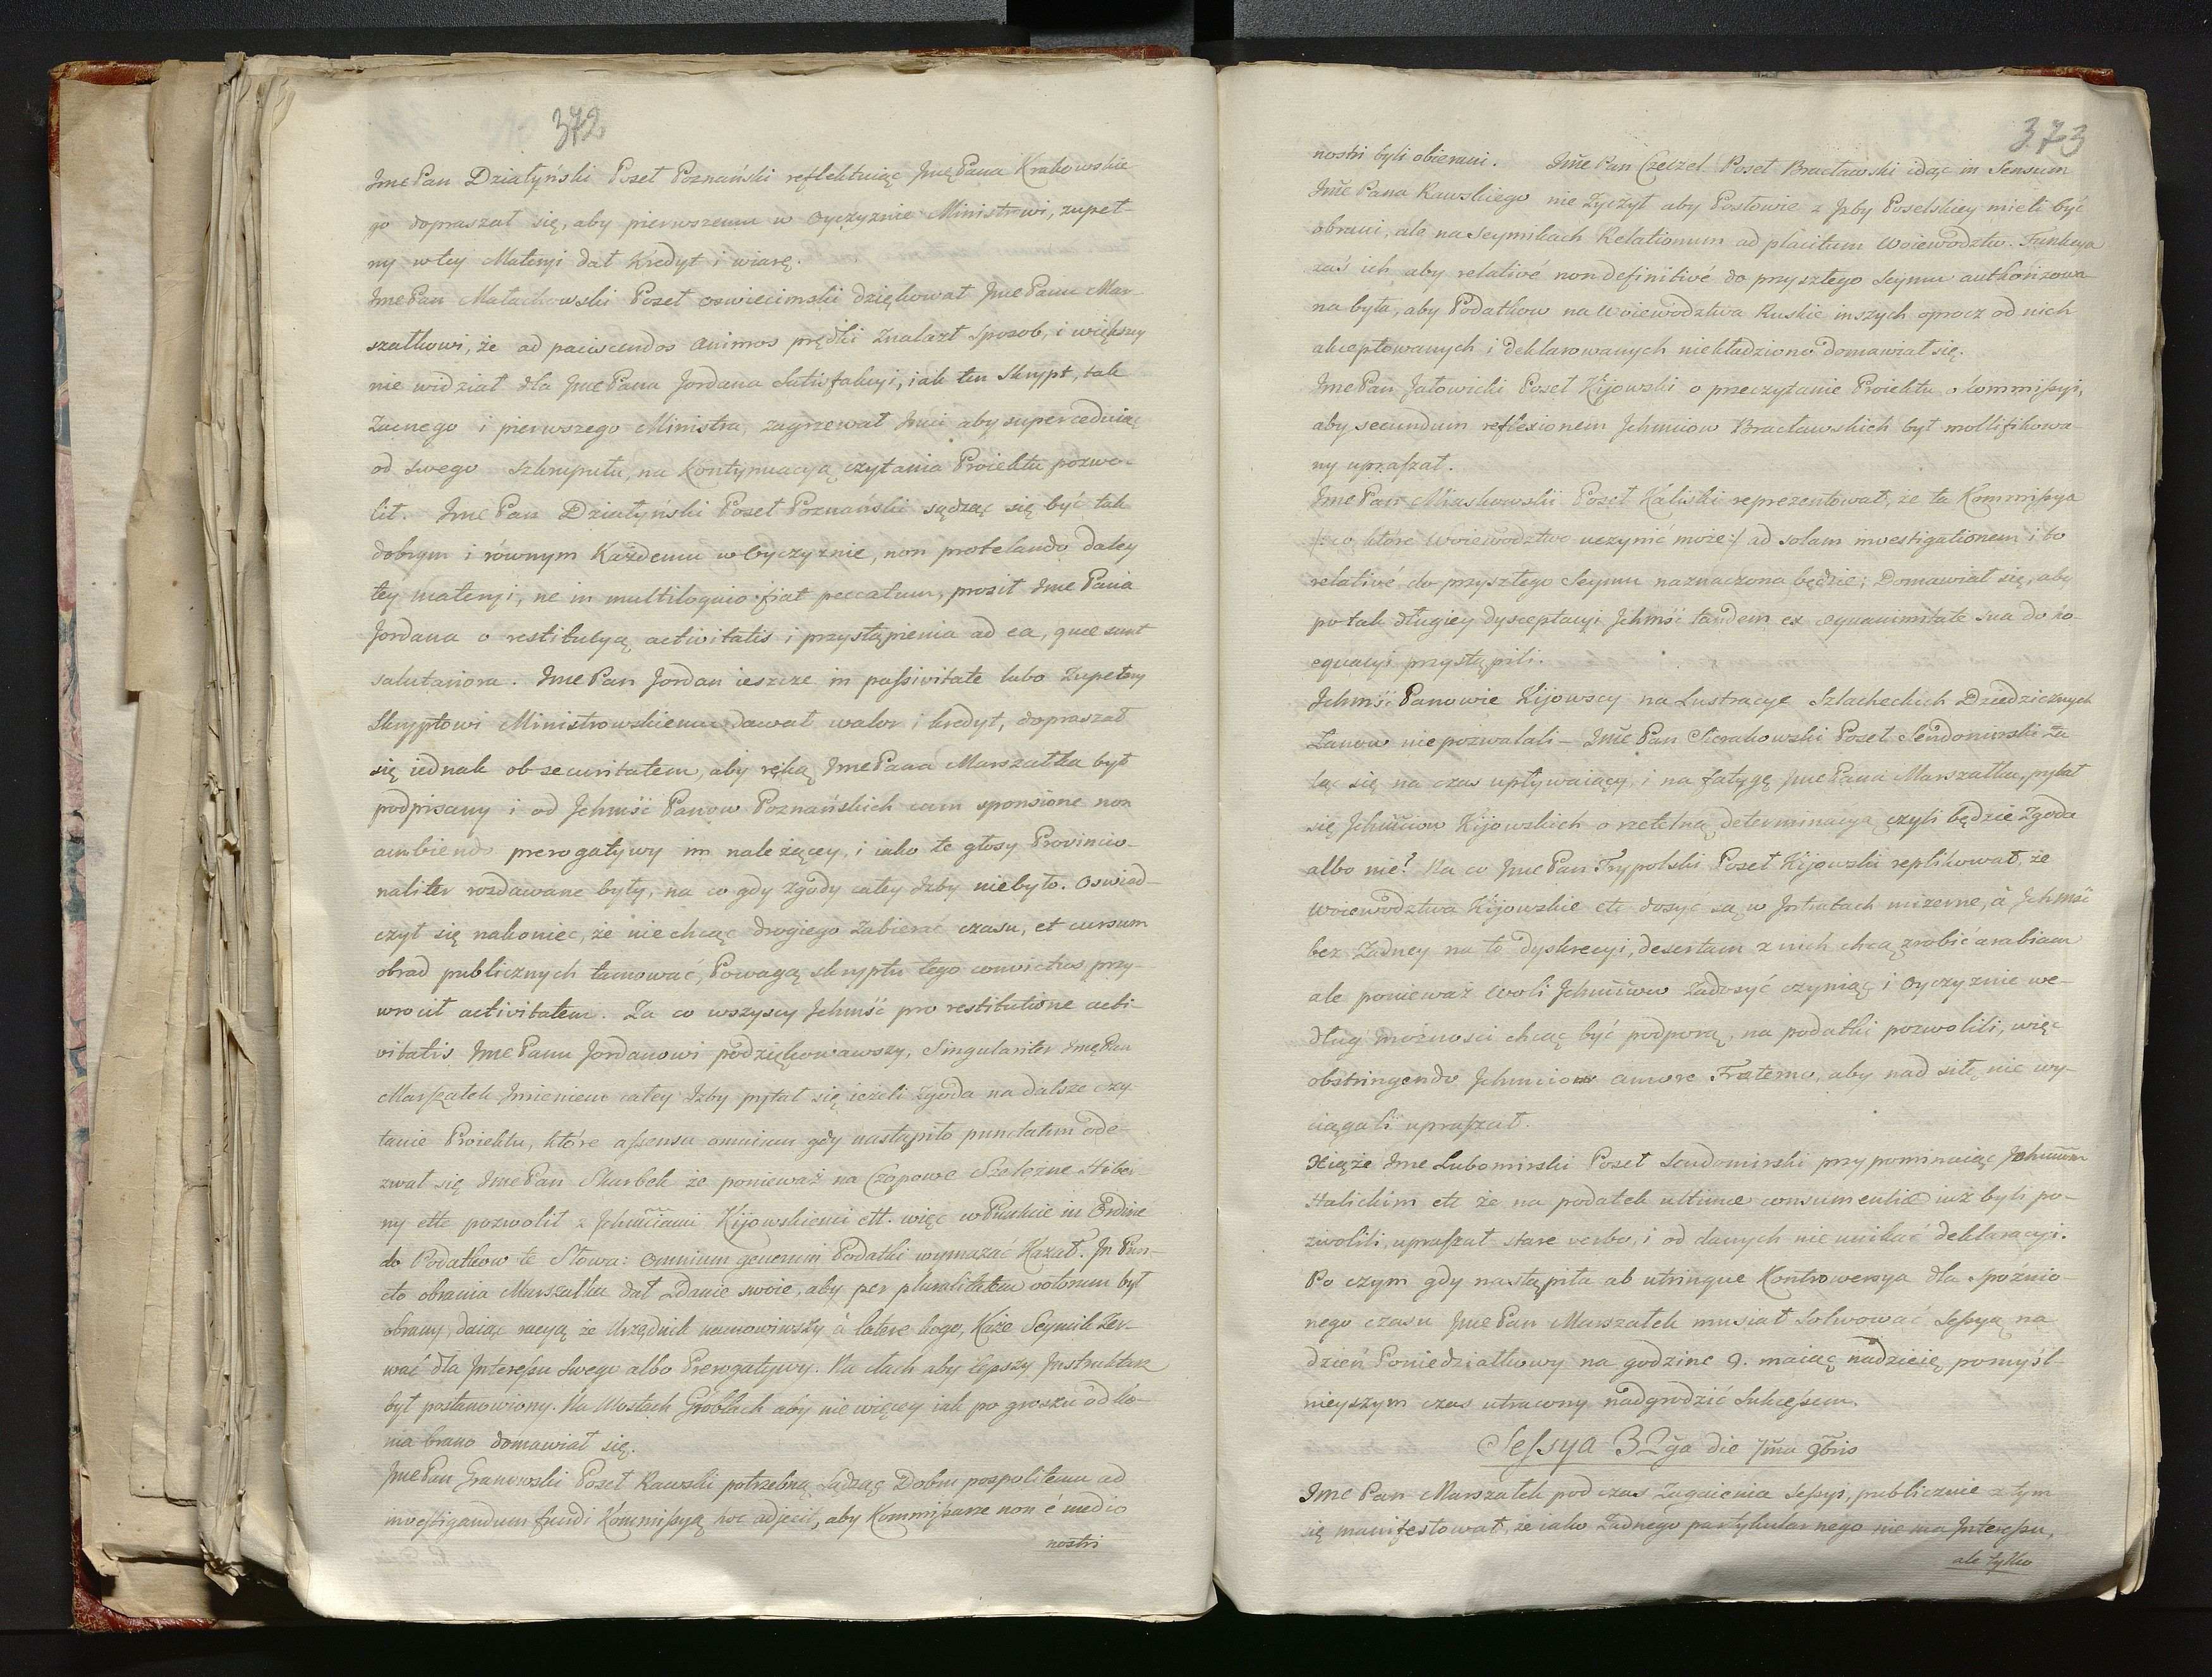 372
Jmc Pan Działyński Poseł Poznański reflektuiąc Jmę Pana Krakowskie
go dopraszał się, aby pierwszemu w Oyczyznie Ministrowi, zupeł-
ny w tey Materyi dał Kredyt i wiarę.
Jmc Pan Małachowski Poseł Oswiecimski dziękował Jmc Panu Mar-
szałkowi, że ad paciscendos animos prędki znalazł sposob, i większy
nie widział dla Jmc Pana Jordana Satisfakcyi, iak ten Skrypt, tak
Zacnego i pierwszego Ministra, zagrzewał Jmci aby superceduiąc
od swego szkrupułu, na Kontynuacyą czytania Proiektu pozwo-
lił. Jmc Pan Działyński Poseł Poznański sądząc się być tak
dobrym i równym Każdemu w Oyczyznie, non protelando daley
tey materyi, ne in multiloquio fiat peccatum, prosił Jmc Pana
Jordana o restitucyą activitatis i przystąpienia ad ea, quae sunt
salutariora. Jmc Pan Jordan ieszcze in passivitate lubo Zupełny
Skryptowi Ministrowskiemu dawał walor i kredyt, dopraszał
się iednak ob securitatem, aby ręką Jmc Pana Marszałka był
podpisany i od Jchmść Panow Poznańskich cum sponsione non
ambiendo prerogatywy im należącey, i iako te głosy Provincio-
naliter rozdawane były, na co gdy zgody całey Izby niebyło. Oswiad-
czył się nakoniec, że nie chcąc drogiego zabierać czasu, et cursum
obrad publicznych tamować, Powagą skryptu tego convictus przy-
wrocił activitatem. Za co wszyscy Jchmść pro restitutione acti-
vitatis Jmc Panu Jordanowi podziękowawszy, Singulariter Jmę Pan
Marszałek Jmieniem całey Izby pytał się ieżeli Zgoda na dalsze czy
tanie Proiektu, które assensu omnium gdy nastąpiło punctatim ode-
zwał się Jmc Pan Skarbek że ponieważ na Czopowe Szelężne Hiber
ny ette pozwolił z Jchmciami Kijowskiemi ett. więc w Punkcie in Ordine
do Podatkow te Słowa: Omnium generum Podatki wymazać Kazał. In Pun-
cto obrania Marszałka dał Zdanie swoie, aby per pluralitatem votorum był
obrany, daiąc racyą że Urzędnik namowiwszy à latere kogo, Każe Seymik Zer-
wać dla Interessu Swego albo Prerogatywy. Na cłach aby lepszy Instruktarz
był postanowiony. Na Mostach Groblach aby nie więcey iak po groszu od ko-
nia brano domawiał się.
Jmc Pan Granowski Poseł Rawski potrzebną sądząc Dobru pospolitemu ad
investigandum fundi Kommissyą hoc adjecit, aby Kommissarze non é medio
nostri
373
nostri byli obierani. Jmc Pan Czeczel Poseł Bracławski idąc in Sensum
Jmc Pana Rawskiego nie Zyczył aby Posłowie z Jzby Poselskiey mieli być
obrani, ale na Seymikach Relationum ad placitum Woiewodztw. Funkcya
zaś ich aby relativé non definitivé do przyszłego Seymu authorizowa
na była, aby Podatkow na Woiewodztwa Ruskie inszych oprocz od nich
akceptowanych i deklarowanych niekładziono domawiał się.
Jmc Pan Jałowicki Poseł Kijowski o przeczytanie Proiektu o kommissyi,
aby secundum reflexionem Jchmciow Bracławskich był mollifikowa-
ny upraszał.
Jmc Pan Miaskowski Poseł Kaliski reprezentował, że ta Kommissya
/: co które Woiewodztwo uczynić może:/ ad solam investigationem i to
relativé do przyszłego Seymu naznaczona będzie; Domawiał się, aby
po tak długiey dysceptacyi Jchmść tandem ex aequanimitate sua do ko-
equacyi przystąpili.
Jchmść Panowie Kijowscy na Lustracye Szlacheckich Dziedzicznych
Łanow niepozwalali – Jmc Pan Sierakowski Poseł Sendomirski Ża
ląc się na czas upływaiący, i na fatygę Jmc Pana Marszałka, pytał
się Jchmciow Kijowskich o rzetelną determinacyą czyli będzie Zgoda
albo nie? Na co Jmc Pan Trypolski Poseł Kijowski replikował, że
Woiewodztwa Kijowskie etc dosyć są w Jntratach mizerne, à Jchmść
bez Żadney na to dyskrecyi, desertam z nich chcą zrobić arabiam
ale ponieważ Woli Jchmciow Zadosyć czyniąc i Oyczyznie we-
dług możnosci chcąc być podporą, na podatki pozwolili, więc
obstringendo Jchmciow amore Fraterno, aby nad siłę nie wy-
ciągali upraszał.
Xiąże Jmc Lubomirski Poseł Sendomirski przypominaiąc Jchmciom
Halickim etc że na podatek ultimae consumentiae iuż byli po-
zwolili, upraszał stare verbo, i od danych nie unikać deklaracyi.
Po czym gdy nastąpiła ab utrinque Kontrowersya dla spoźnio-
nego czasu Jmc Pan Marszałek musiał Solwować Sessyą na
dzień Poniedziałkowy na godzine 9. maiąc nadzieię pomyśl-
nieyszym czas utracony nadgrodzić Sukcessem.
Sessya 32ga die 7ma 9bris
Jmc Pan Marszałek podczas Zagaienia Sessyi, publicznie z tym
się manifestował, że iako Żadnego partykularnego nie ma Interessu,
ale tylko